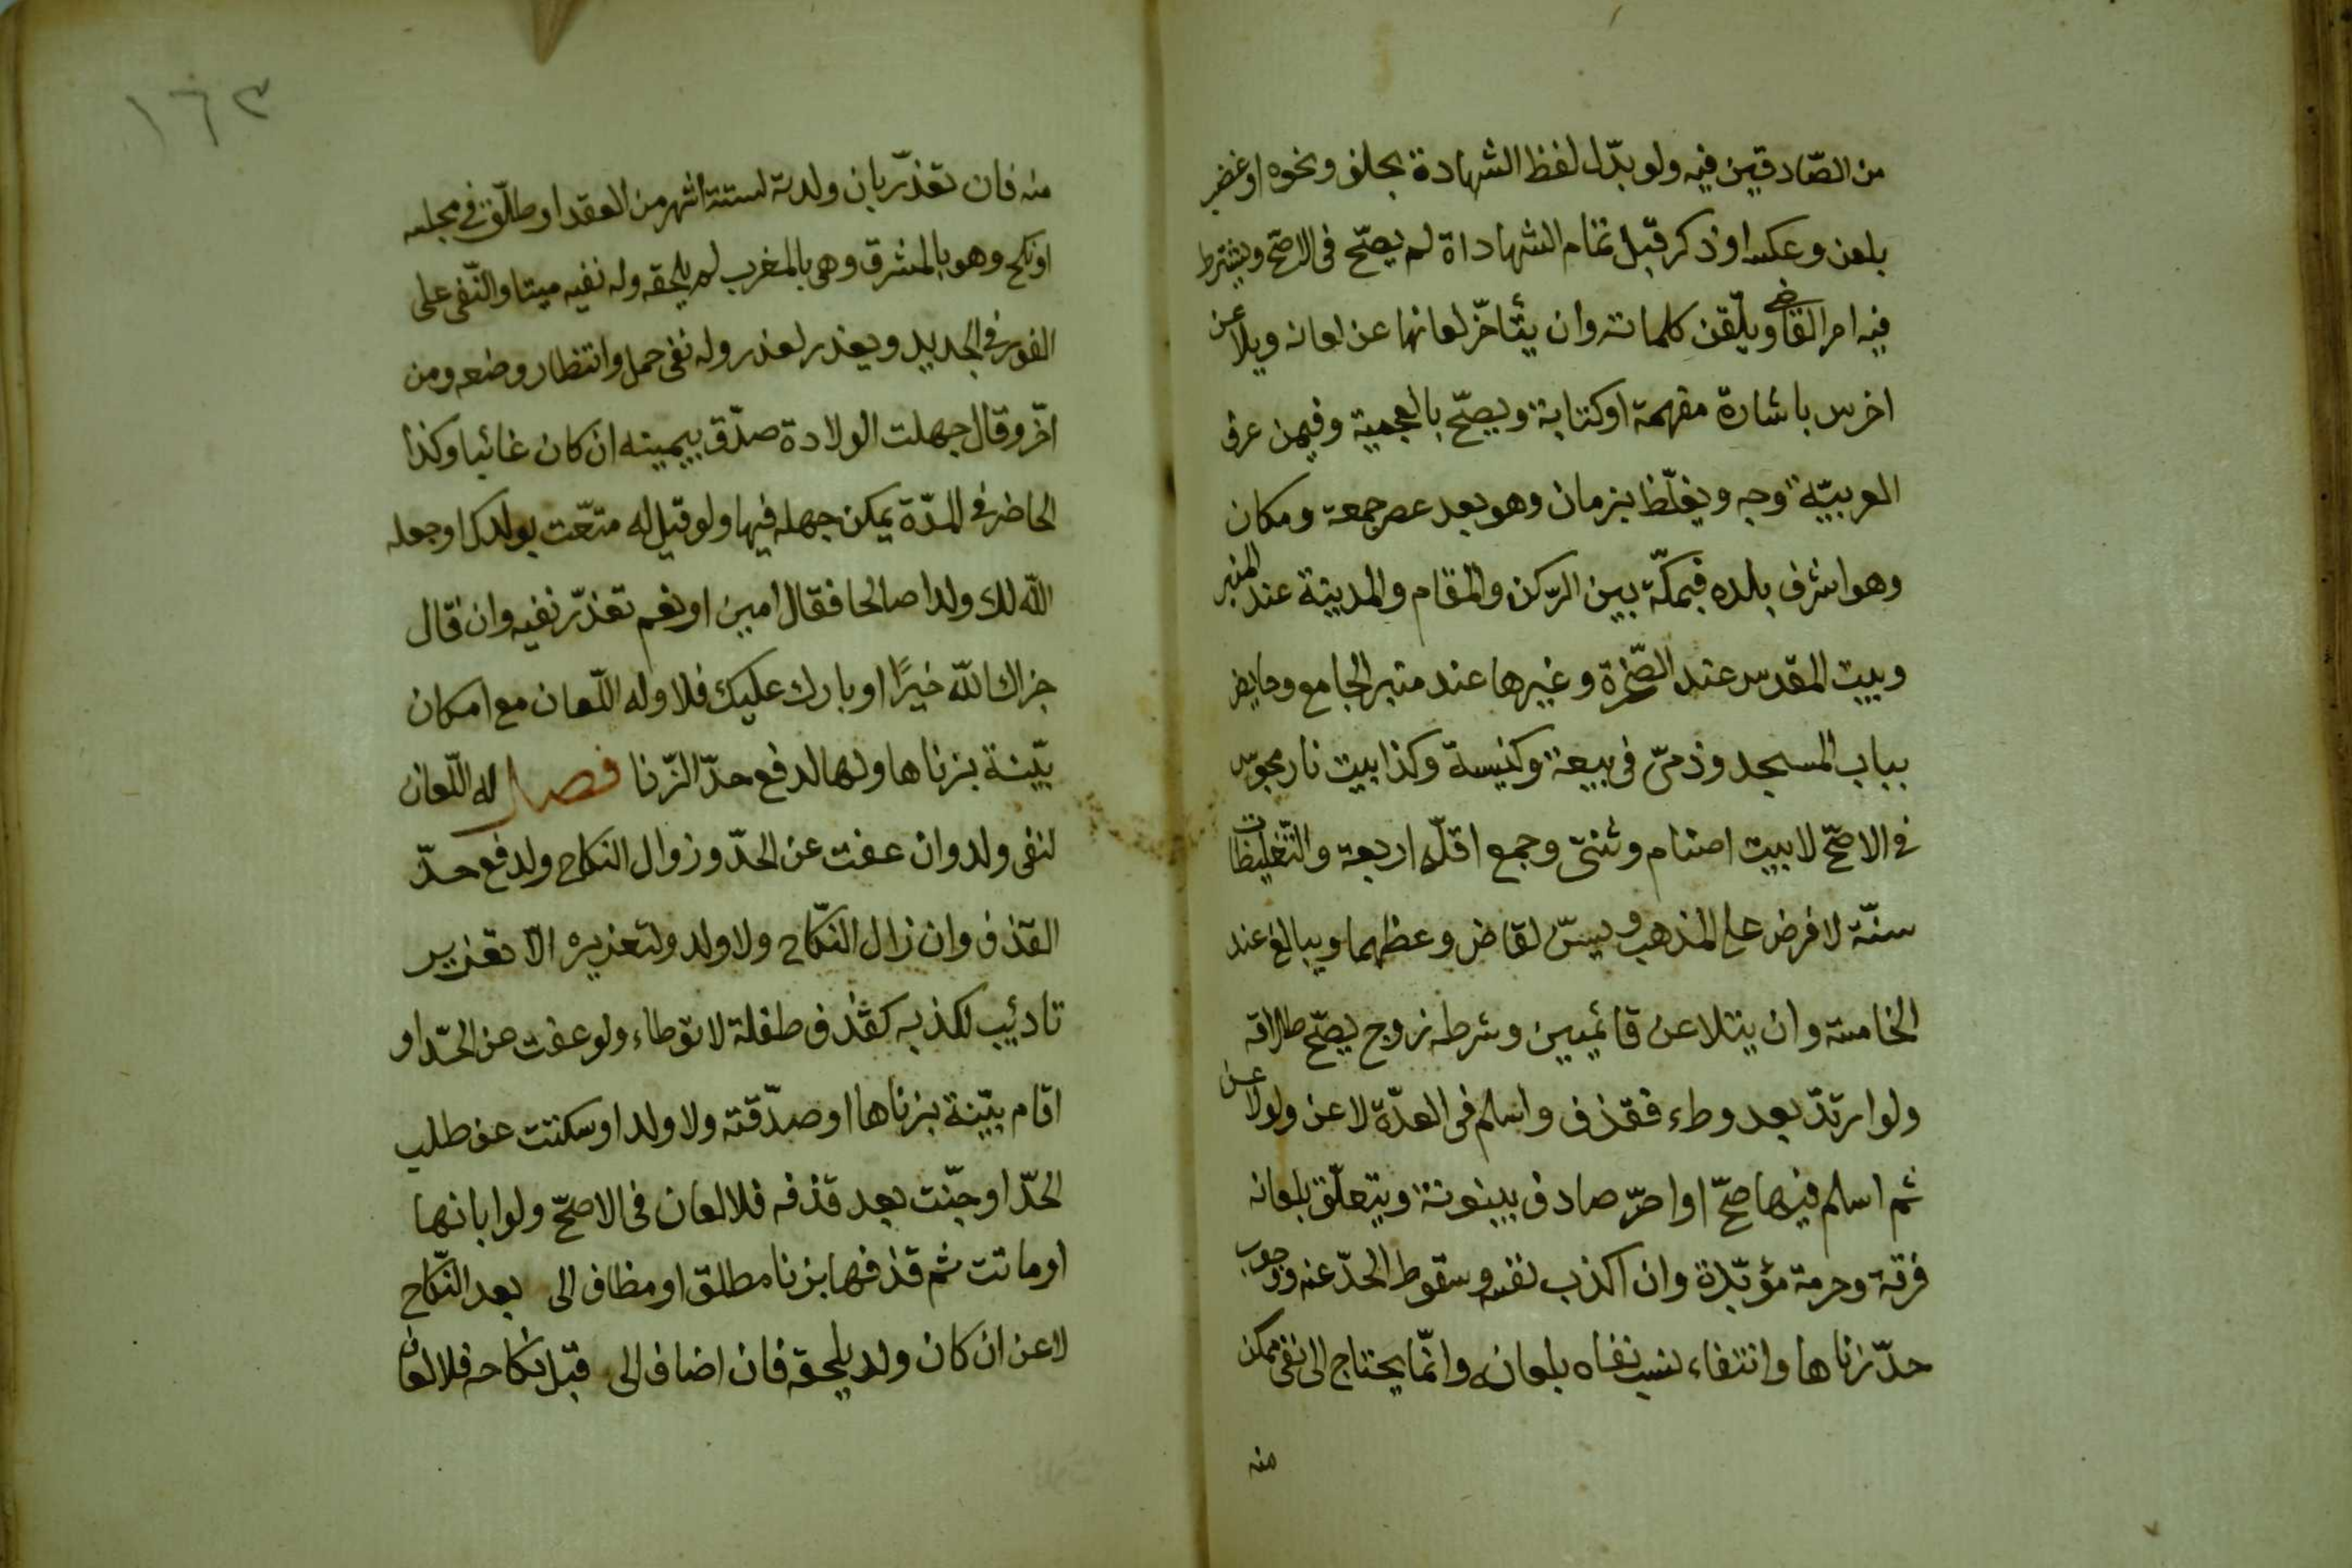 من الصّادقين فيه ولو بدّل لفظ الشهادة بحلف ونحوه او غضب
بلعن وعكسه او ذكر قبل تمام الشهاداة لم يصحّ فى الاصحّ ويشترط
فيه امر القاضى ويلّقن كلماته وان يتأخرّ لعانها عن لعانه ويلاعن
اخرس باشارة مفهمة او كتابة ويصحّ بالعجمية وفيمن عرف
العربيّة وجه ويغلّظ بزمان وهو بعد عصر جمعة ومكان
وهو اشرف بلده فبمكّة بين الرّكن والمقام والمدينة عند المنبر
وبيت المقدس عند الصّخرة وغيرها عند منبر الجامع وحايض
بباب المسجد وذمىّ فى بيعة وكنيسة وكذا بيت نار مجوسّى
فى الاصحّ لا بيت اصنام وثنىّ وجمع اقلّه اربعة والتّغليظات
سنّة لا فرض على المذهب ويسنّ لقاض وعظهما ويبالغ عند
الخامسة وان يتلاعن قائميين وشرطه زوج يصحّ طلاقه
ولو ارتدّ بعد وطء فقذف واسلم فى العدّة لاعن ولو لاعن
ثم اسلم فيها صحّ او اصرّ صادف بينونة ويتعلّق بلعانه
فرقة وحرمة مؤبّدة وان اكذب نفسه وسقوط الحدّ عنه ووجوب
حدّ زناها وانتفاء نسب نفاه بلعانه وانّما يحتاج الى نفى ممكن
منه
١٦٣
منه فان تعذّر بان ولدته لستة اشهر من العقد او طلّق فى مجلسه
او نكح وهو بالمشرق وهى بالمغرب لم يلحقه وله نفيه ميتا والنّفى على
الفور فى الجديد ويعذر لعذر وله نفى حمل وانتظار وضعه ومن
اخّر وقال جهلت الولادة صدّق بيمينه ان كان غائبا وكذا
الحاضر فى المدّة يمكن جهله فيها ولو قيل له متعّت بولدك او جعله
الله لك ولدا صالحا فقال امين او نعم تعذّر نفيه وان قال
جزاك الله خيرًا او بارك عليك فلا وله اللّعان مع امكان
بيّنة بزناها ولها لدفع حدّ الزّنا فصل له اللّعان
لنفى ولد وان عفت عن الحدّ وزوال النكاح ولدفع حدّ
القذف وان زال النكّاح ولا ولد ولتعزيره الّا تعزير
تاديئب لكذبه كقذف طفلة لا توطاء ولو عفت عن الحدّ او
اقام بيّنة بزناها او صدّقته ولا ولد او سكتت عن طلب
الحدّ او جنّت بعد قذفه فلا لعان فى الاصحّ ولو ابانها
او ماتت ثم قذفها بزنا مطلق او مظاف الى بعد النّكاح
لاعن ان كان ولد يلحقه فان اضاف الى قبل نكاحه فلا لعان